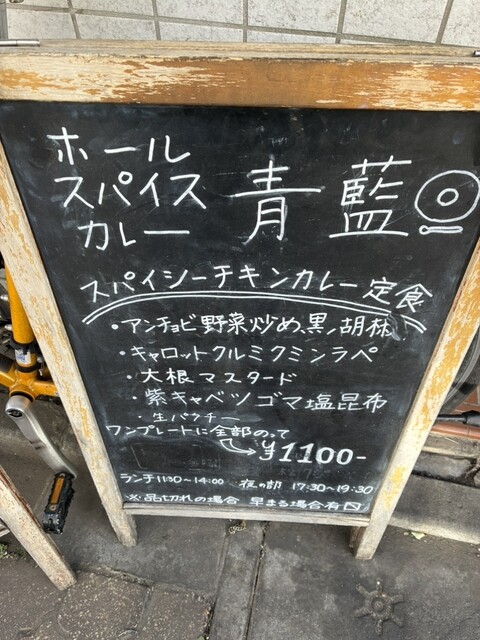 ホール
スパイス
カレー
青藍
スパイシーチキンカレー定食
・アンチョビ野菜炒め、黒胡麻
・キャロットクルミクミンラペ
・大根マスタード
・紫キャベツゴマ塩昆布
・生パクチー
ワンプレートに全部のって
¥1100-
ランチ11:30~14:00 夜の部 17:30~19:30
※品切れの場合 早まる場合有